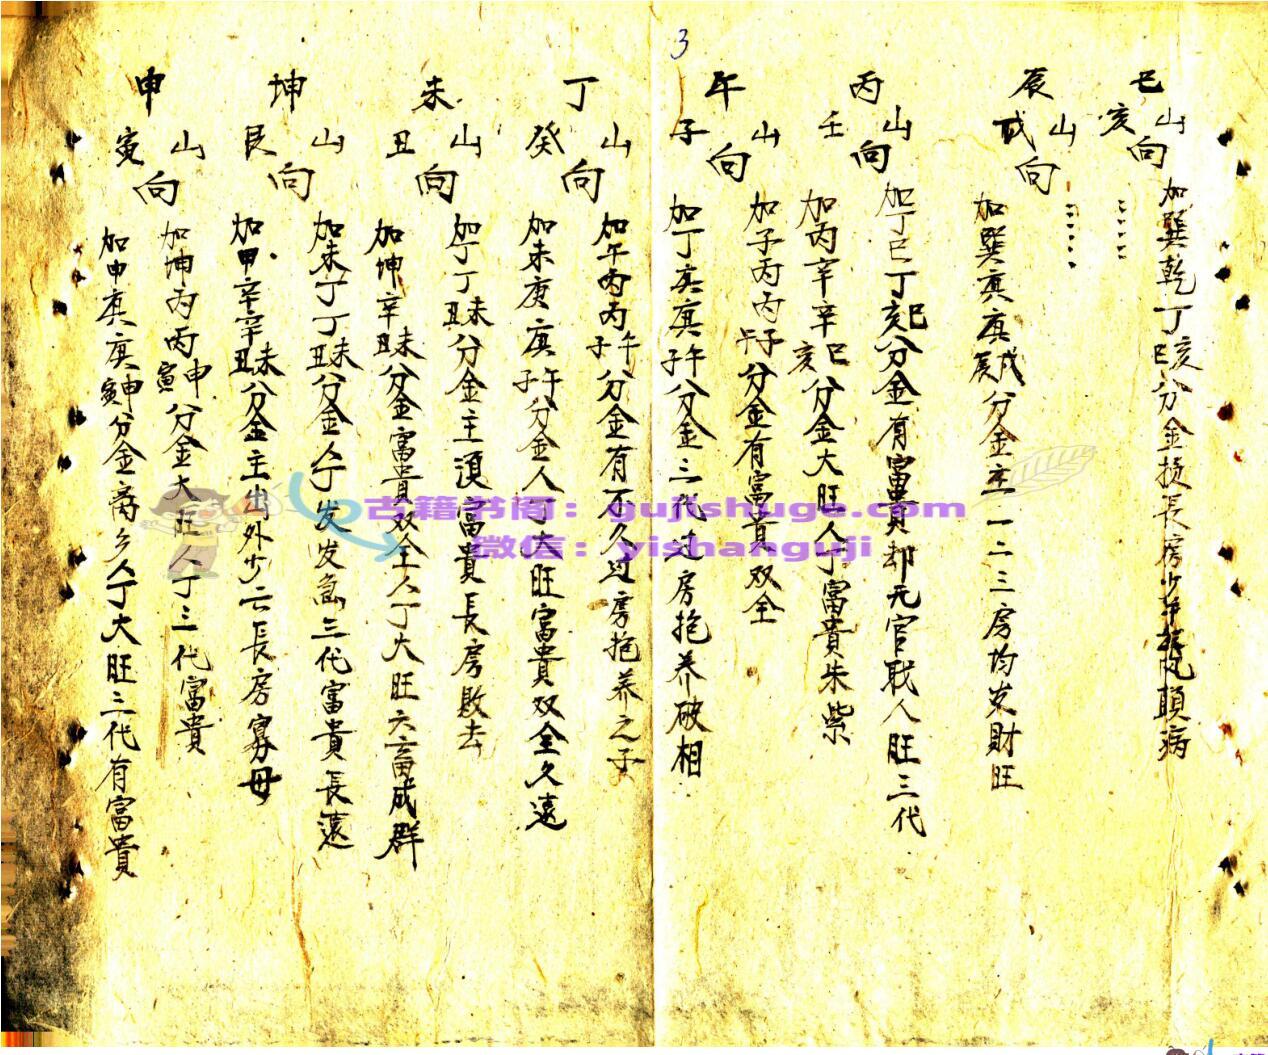 3
巳山亥向
加巽乾丁亥巳分金損長房少年
頭病
辰山戌向
加巽庚庚戌辰分金主一二三房均发財旺
丙山壬向
加丁巳丁巳亥分金有富貴却无官职人旺三代
加丙辛辛巳亥分金大旺人丁富貴朱紫
午山子向
加子丙丙子午分金有富貴双全
加丁庚庚午子分金三代过房抱养破相
丁山癸向
加午丙丙午子分金有不久过房抱养之子
加未庚庚午子分金人丁大旺富貴双全久遠
未山丑向
加丁丁未丑分金主須富貴長房敗去
加坤辛未丑分金富貴双全人丁大旺六畜成群
坤山艮向
加未丁丁未丑分金人丁发发急三代富貴長遠
加甲辛辛未丑分金主出外少亡長房寡母
申山寅向
加坤丙丙申寅分金大旺人丁三代富貴
加申庚庚申寅分金离乡人丁大旺三代有富貴
古籍书阁：gujishuge.com
微信：yishanguji